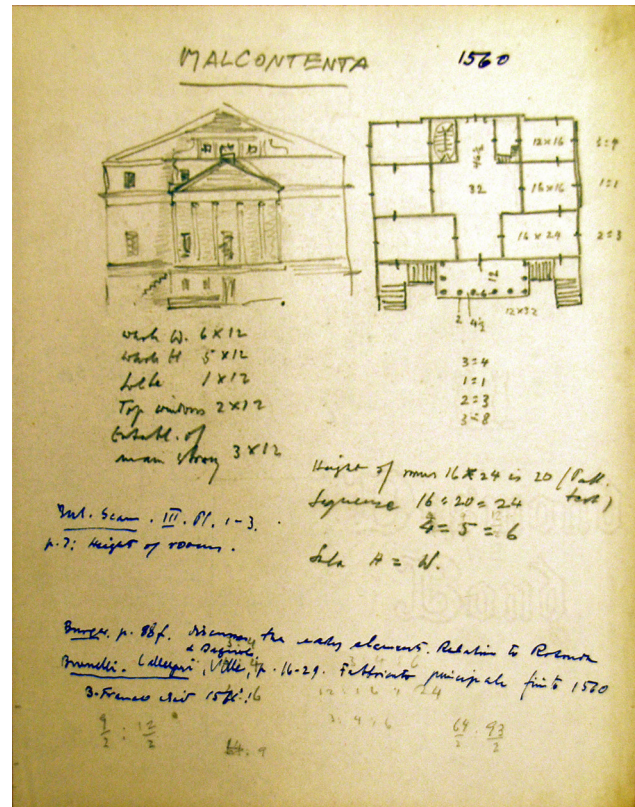 MALCONTENTA 1560
12 x 16 3:4
46½
32 16 x 16 1:1
16 x 24 2:3
12
2 4½ 12x32
W. 6 x 12
H 5 x 12
1 x 12
Top windows 2 x 12
Entabl. of
main story 3 x 12
3:4
1:1
2:3
3:8
Height of rooms 16 x 24 is 20 (Pall. text)
Sequence 16:20:24
4:5:6
Sala H = W.
Bert. Scam. III. Pl. 1-3.
p. 7: Height of rooms.
Burger p. 88 f. discusses the early elements. Relation to Rotonda
Brunelli - Callegari, Ville, p. 16-29. Fabbricato principale finito 1560
B. Franco
12 : 16 : 24
3 : 4 : 6
9/2 : 12/2
64/2 : 93/2